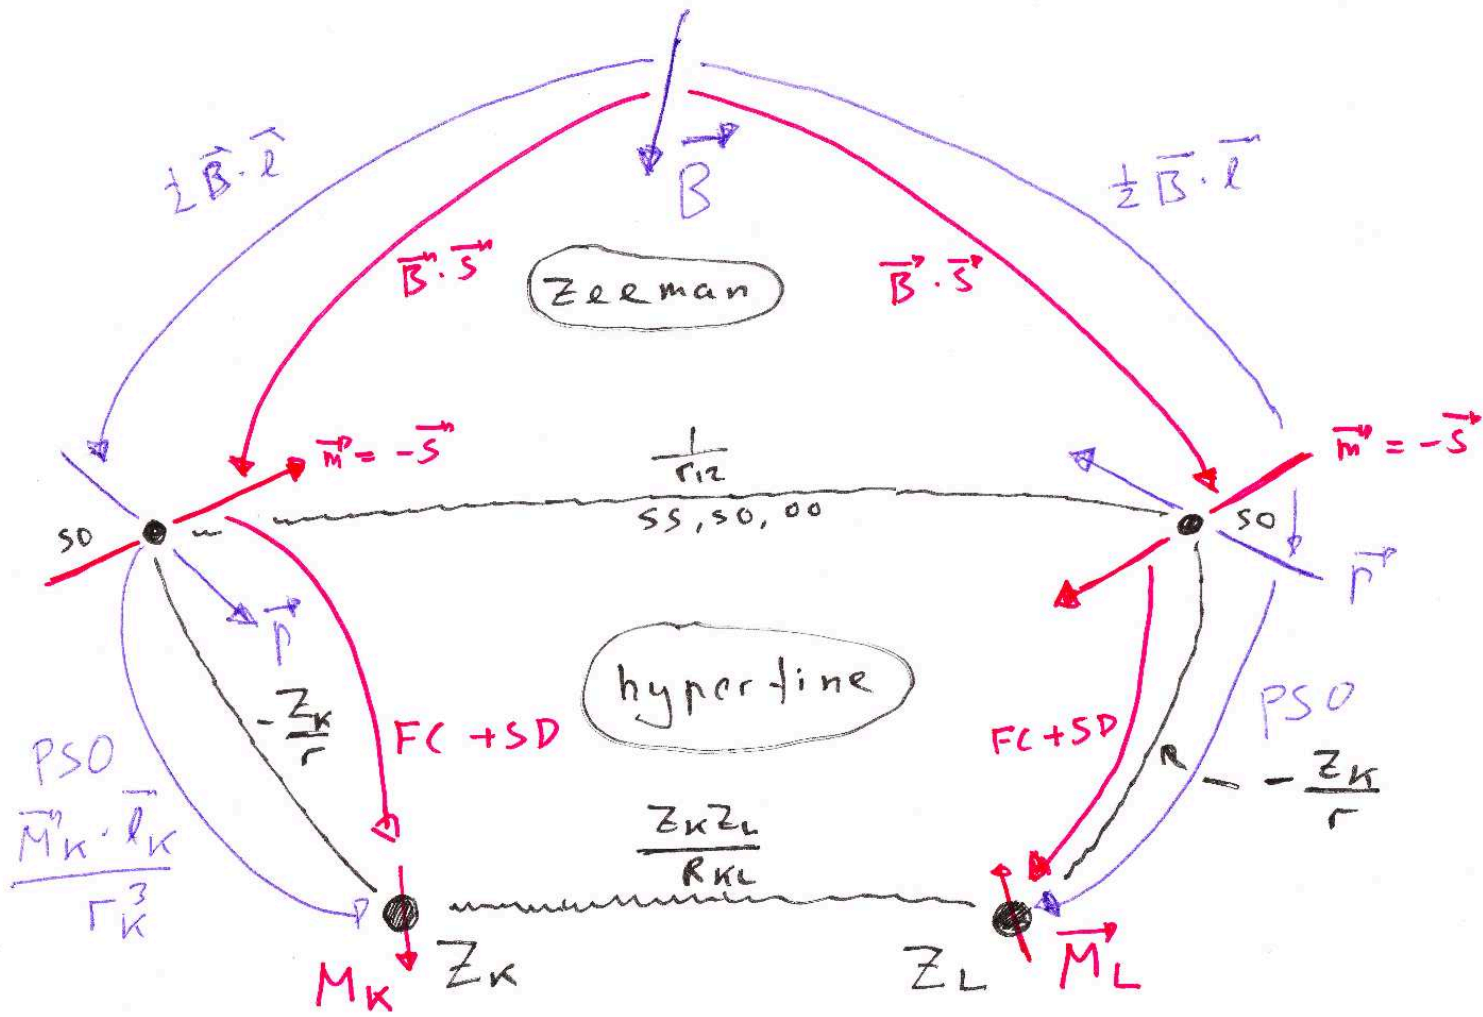 B⃗
½ B⃗·l⃗
½ B⃗·l⃗
B⃗·s⃗
B⃗·s⃗
Zeeman
m⃗ = -s⃗
1/r₁₂
m⃗ = -s⃗
SS, SO, OO
SO
SO
p⃗
p⃗
hyperfine
-Z_K/r
FC + SD
FC + SD
PSO
PSO
R
- Z_K/r
M⃗_K·l⃗_K/r_K³
Z_K Z_L/R_KL
M_K
Z_K
Z_L
M⃗_L